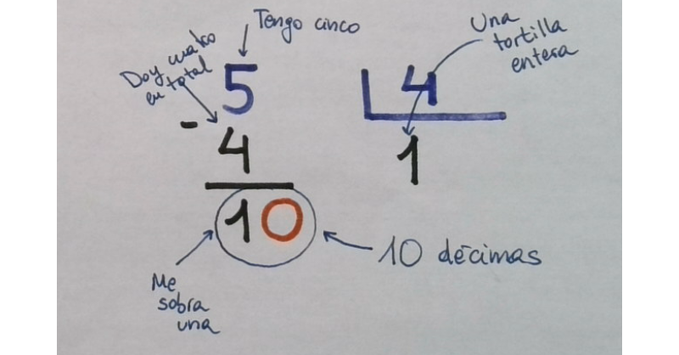 Tengo cinco
Doy cuatro
en total
5
- 4
10
Me
sobra
una
10 décimas
4
1
Una
tortilla
entera